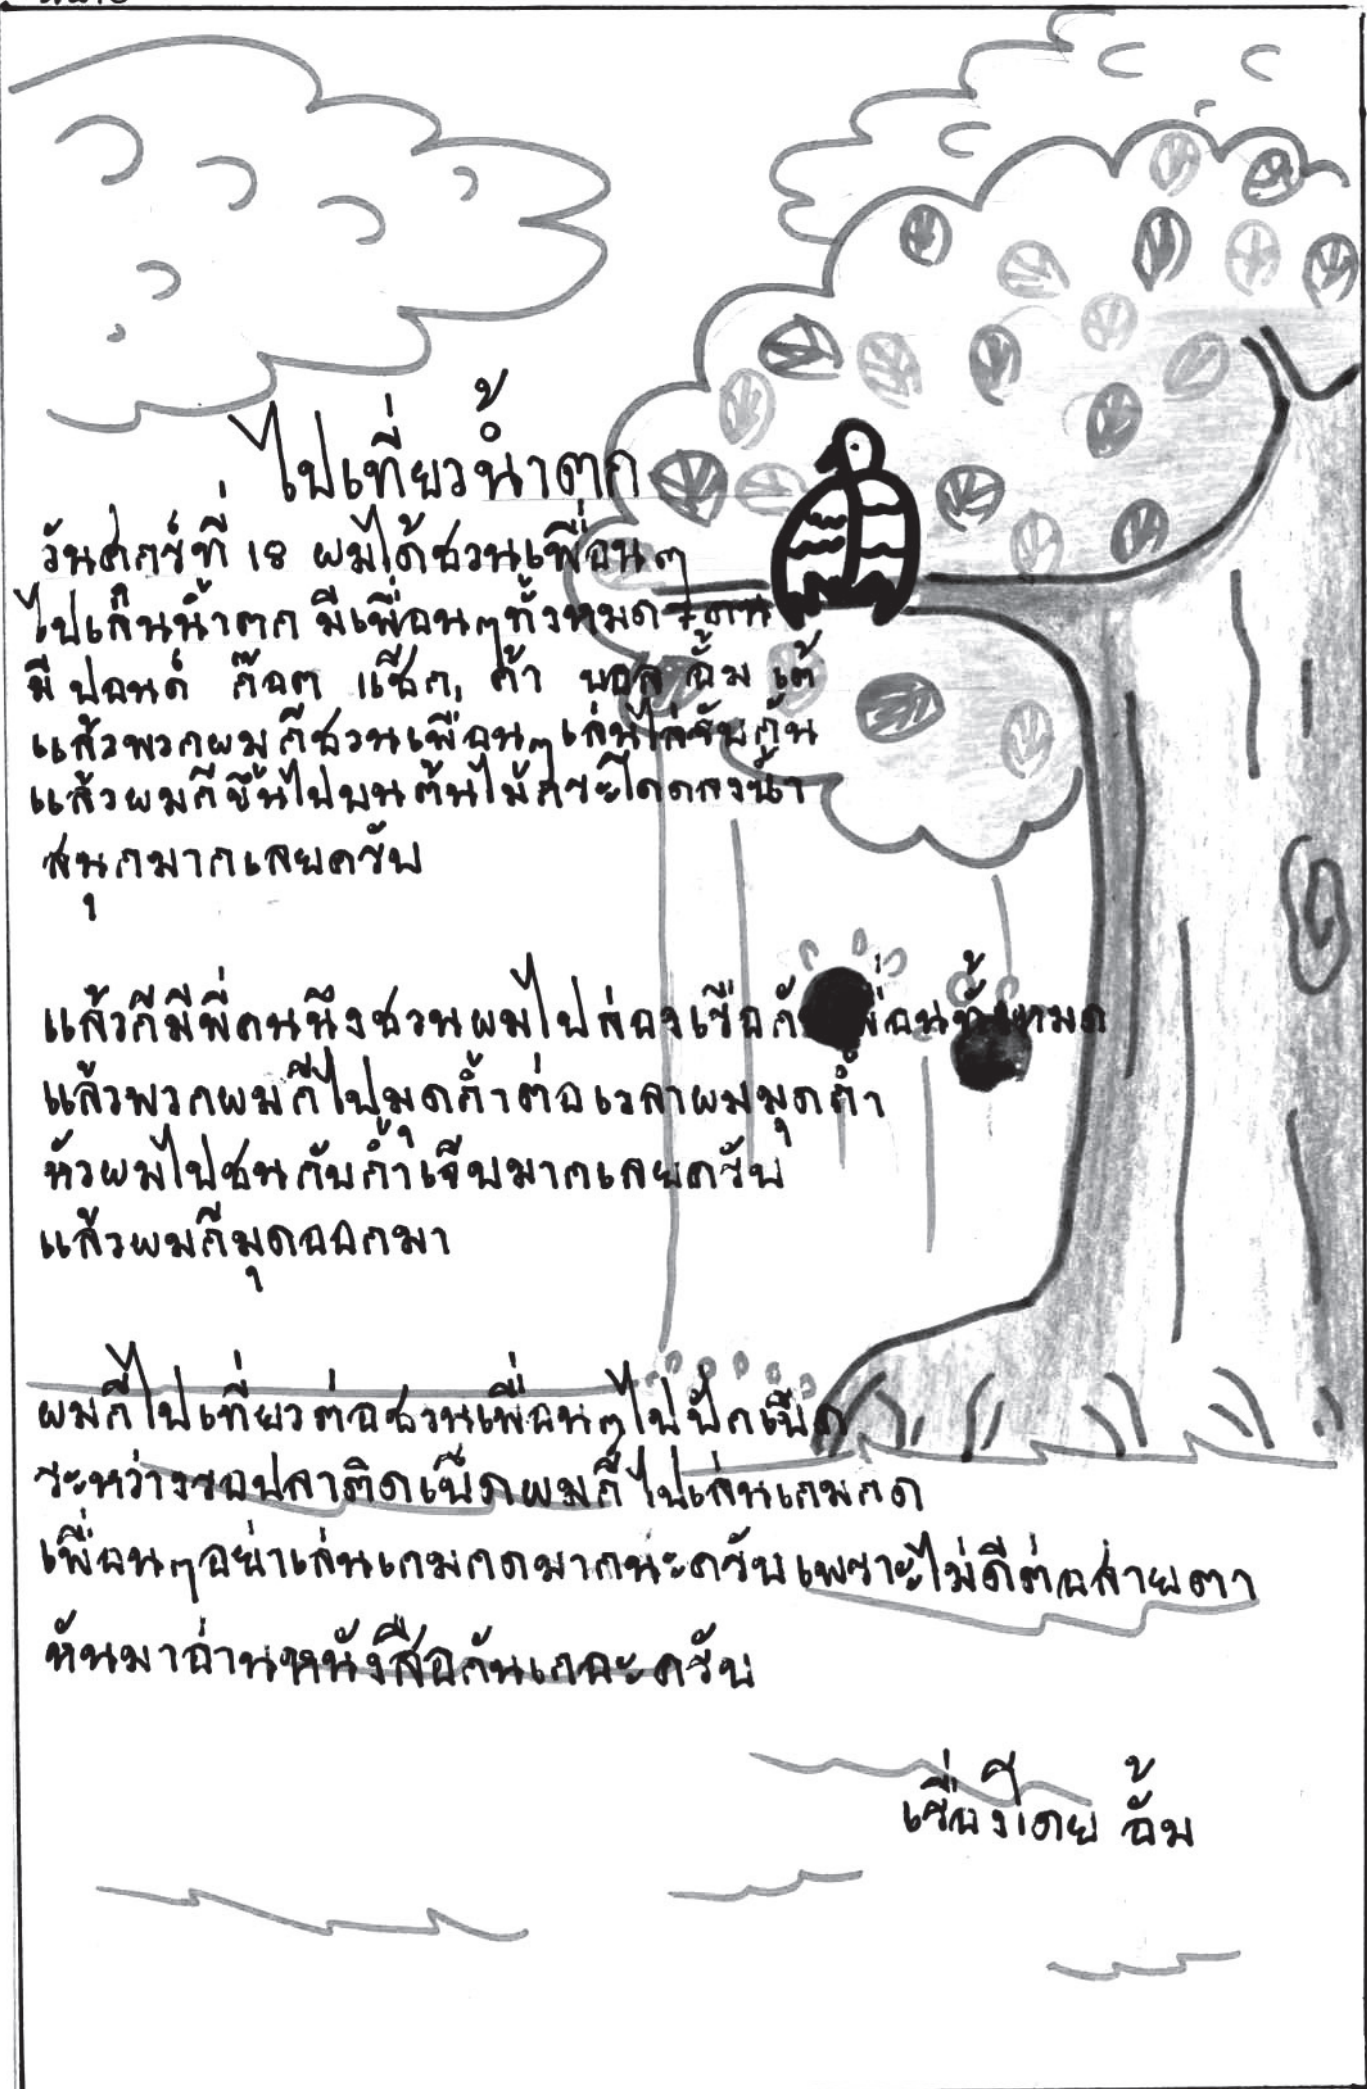 ไปเที่ยวน้ำตก
วันศุกร์ที่ 18 ผมได้ชวนเพื่อนๆ
ไปเล่นน้ำตก มีเพื่อนๆทั้งหมด 7 คน
มี ปอนด์ ก๊อต แช๊ก, ค้า บอล อั้ม เต้
แล้วพวกผมก็ชวนเพื่อนๆเล่นไล่จับกัน
แล้วผมก็ขึ้นไปบนต้นไม้กระโดดลงน้ำ
สนุกมากเลยครับ
แล้วก็มีพี่คนนึงชวนผมไปล่องเรือกับเพื่อนทั้งหมด
แล้วพวกผมก็ไปมุดถ้ำต่อเวลาผมมุดถ้ำ
หัวผมไปชนกับถ้ำเจ็บมากเลยครับ
แล้วผมก็มุดออกมา
ผมก็ไปเที่ยวต่อชวนเพื่อนๆไปปักเบ็ด
ระหว่างรอปลาติดเบ็ดผมก็ไปเล่นเกมกด
เพื่อนๆอย่าเล่นเกมกดมากนะครับเพราะไม่ดีต่อสายตา
หันมาอ่านหนังสือกันเถอะครับ
เรื่องโดย อั้ม